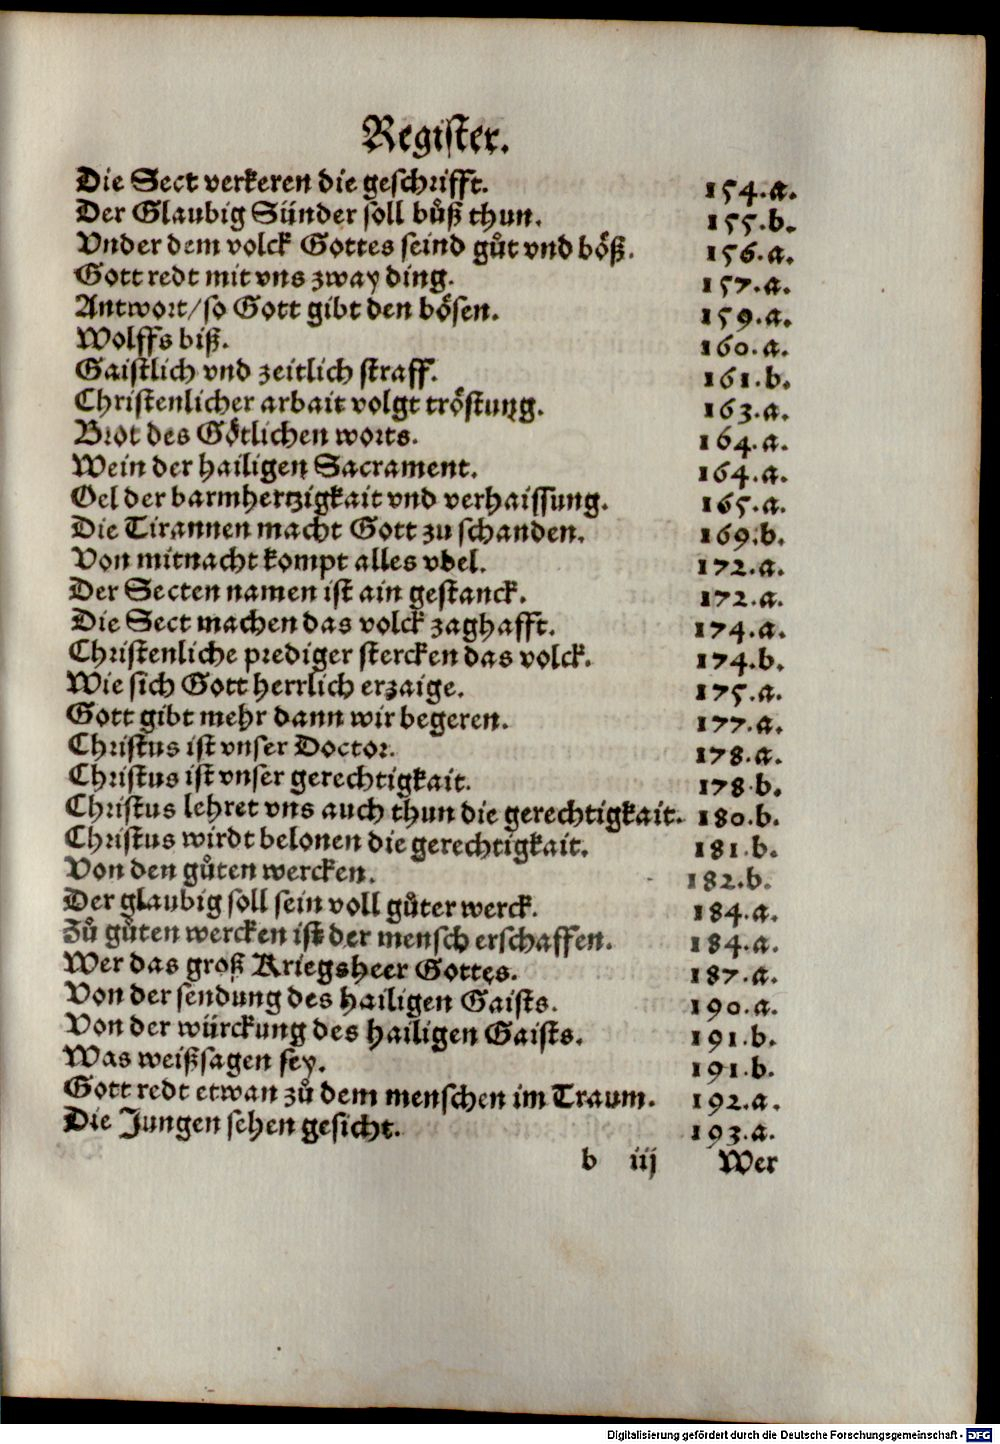 Register.
Die Sect verkeren die geschrifft. 154.a.
Der Glaubig Sünder soll bůß thun. 155.b.
Vnder dem volck Gottes seind gůt vnd böß. 156.a.
Gott redt mit vns zway ding. 157.a.
Antwort/so Gott gibt den bösen. 159.a.
Wolffs biß. 160.a.
Gaistlich vnd zeitlich straff. 161.b.
Christenlicher arbait volgt tröstung. 163.a.
Brot des Götlichen worts. 164.a.
Wein der hailigen Sacrament. 164.a.
Oel der barmhertzigkait vnd verhaissung. 165.a.
Die Tirannen macht Gott zu schanden. 169.b.
Von mitnacht kompt alles vbel. 172.a.
Der Secten namen ist ain gestanck. 172.a.
Die Sect machen das volck zaghafft. 174.a.
Christenliche prediger stercken das volck. 174.b.
Wie sich Gott herrlich erzaige. 175.a.
Gott gibt mehr dann wir begeren. 177.a.
Christus ist vnser Doctor. 178.a.
Christus ist vnser gerechtigkait. 178.b.
Christus lehret vns auch thun die gerechtigkait. 180.b.
Christus wirdt belonen die gerechtigkait. 181.b.
Von den gůten wercken. 182.b.
Der glaubig soll sein voll gůter werck. 184.a.
Zů gůten wercken ist der mensch erschaffen. 184.a.
Wer das groß Kriegsheer Gottes. 187.a.
Von der sendung des hailigen Gaists. 190.a.
Von der würckung des hailigen Gaists. 191.b.
Was weißsagen sey. 191.b.
Gott redt etwan zů dem menschen im Traum. 192.a.
Die Jungen sehen gesicht. 193.a.
b iij Wer
Digitalisierung gefördert durch die Deutsche Forschungsgemeinschaft - DFG